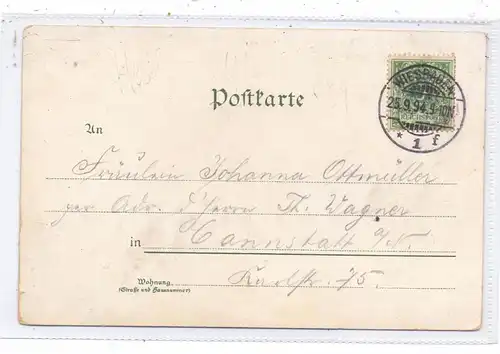 Postkarte
WIESBADEN
25.9.94.9-10N.
* 1 f
An
Fräulein Johanna Ottmüller
per Adr. Herrn Th. Wagner
in Cannstatt a/N.
Karlstr. 75.
Wohnung
(Straße und Hausnummer)